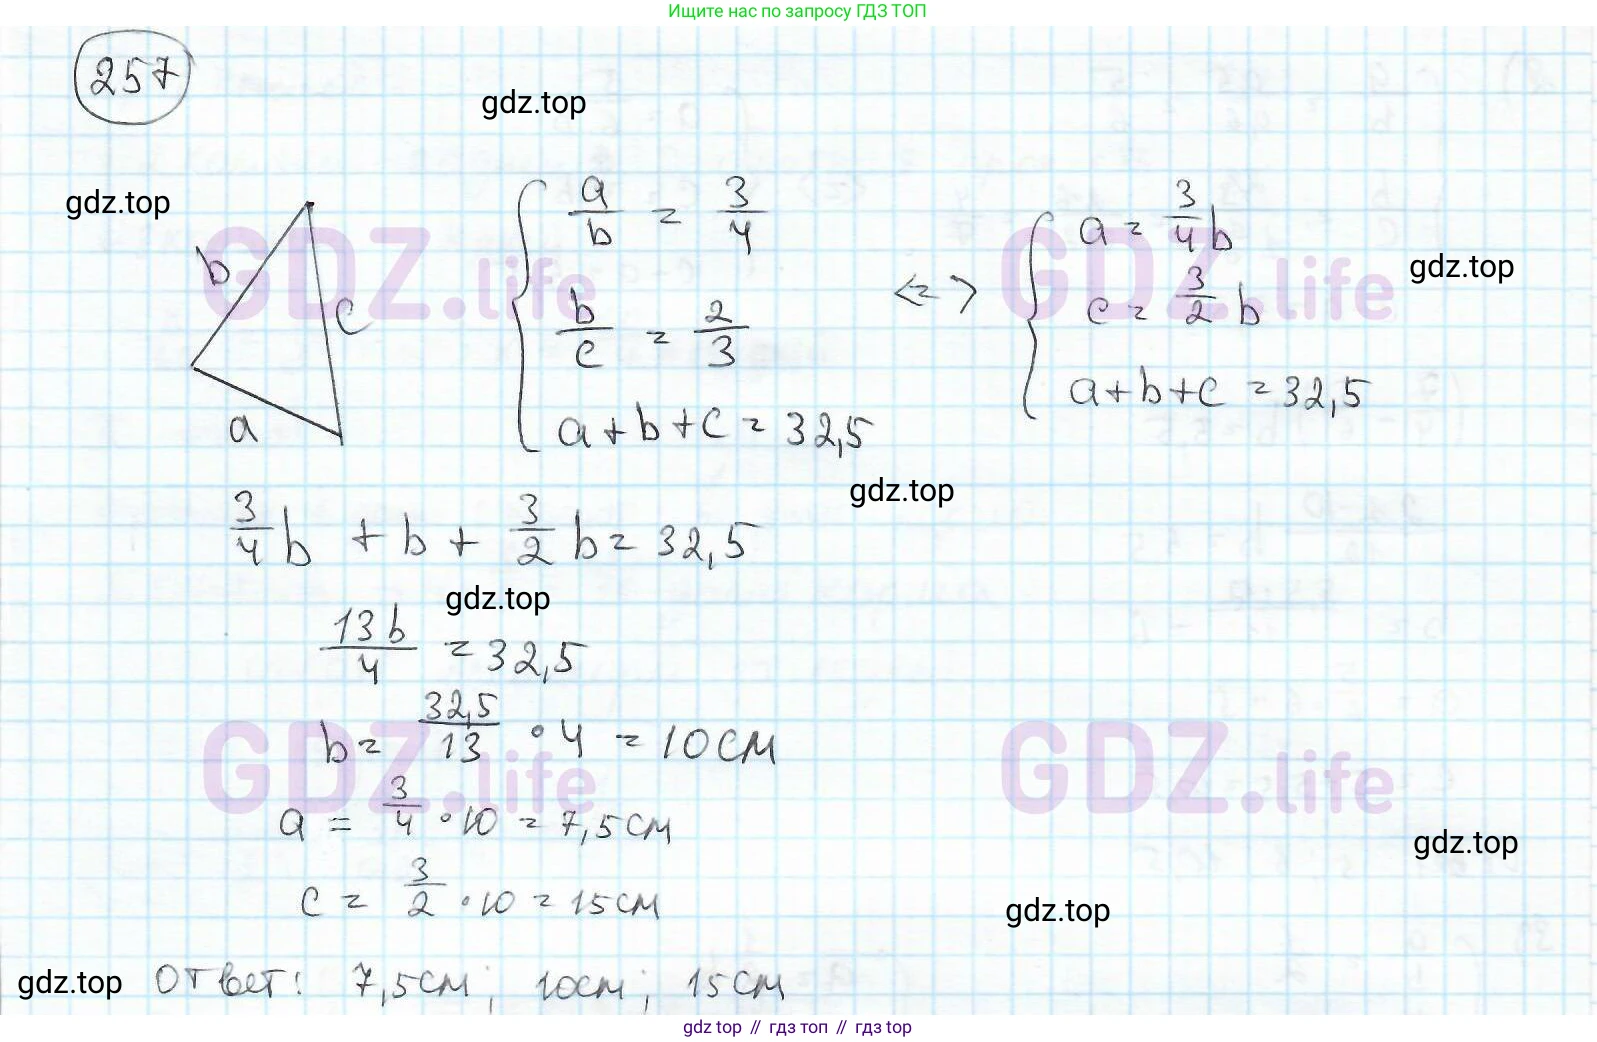 Ищите нас по запросу ГДЗ ТОП
257
gdz.top
gdz.top
b
c
a
a/b = 3/4
b/c = 2/3
a+b+c = 32,5
<=>
a = 3/4 b
c = 3/2 b
a+b+c = 32,5
gdz.top
GDZ.life
GDZ.life
gdz.top
3/4 b + b + 3/2 b = 32,5
gdz.top
13b/4 = 32,5
b = 32,5/13 · 4 = 10 см
GDZ.life
GDZ.life
a = 3/4 · 10 = 7,5 см
gdz.top
c = 3/2 · 10 = 15 см
gdz.top
gdz.top
Ответ: 7,5 см; 10 см; 15 см
gdz top // гдз топ // gdz top